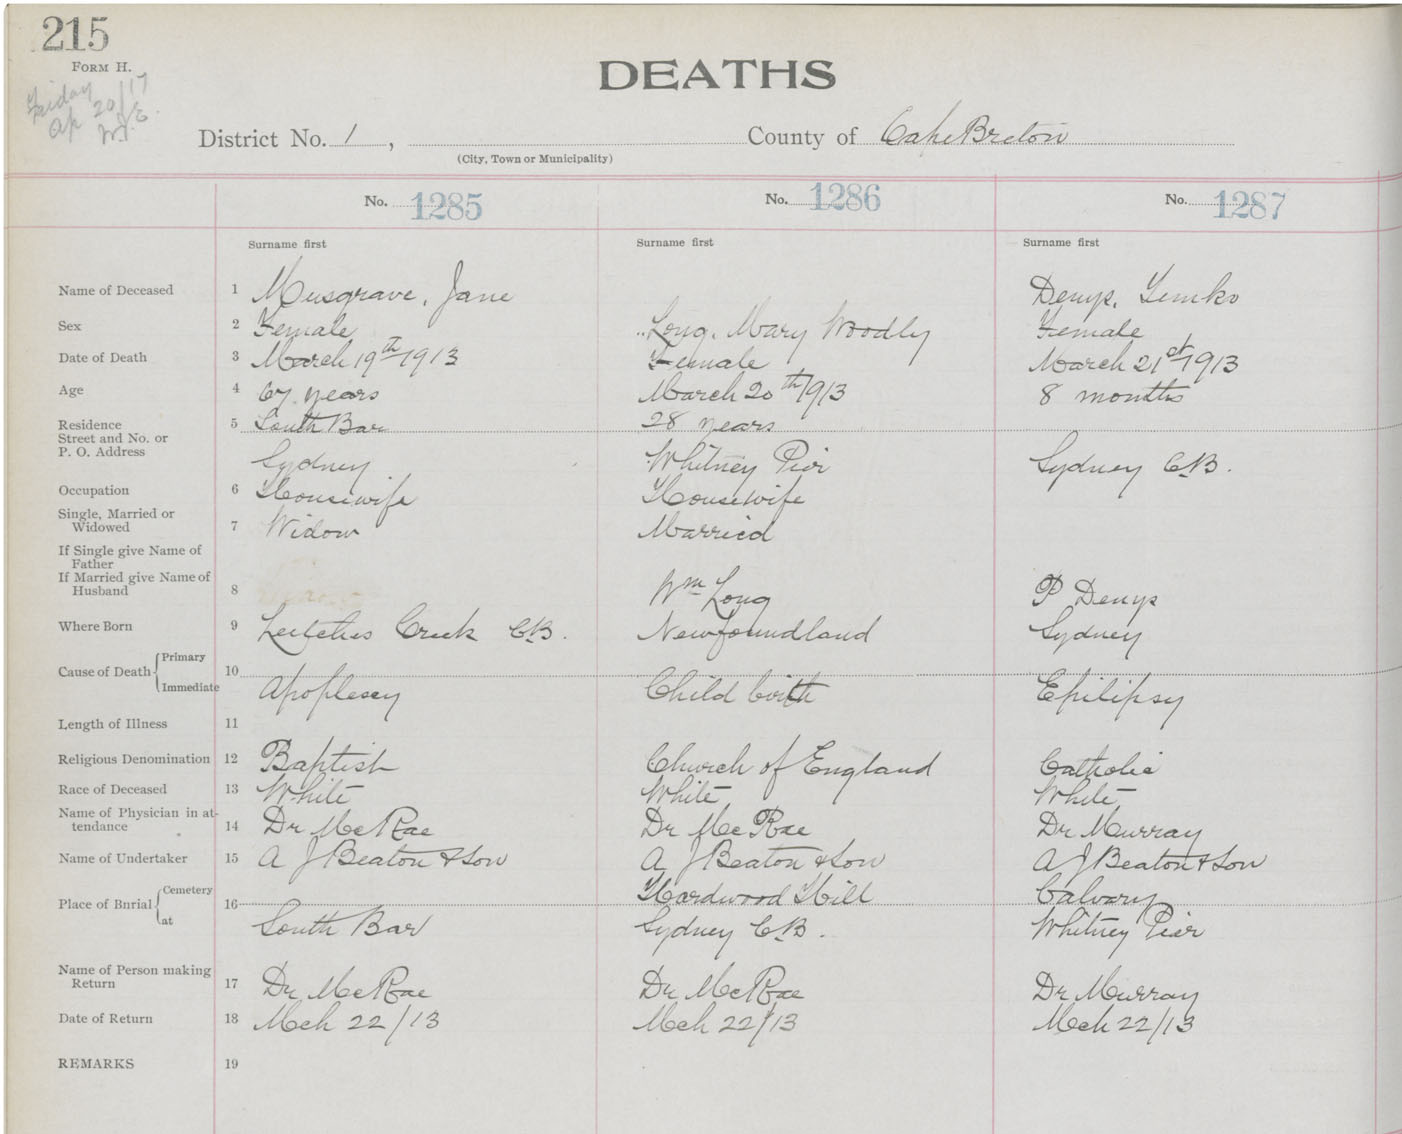 215
FORM H.
Friday
Ap 20/17
W.E.
DEATHS
District No. 1, County of Cape Breton
(City, Town or Municipality)
No. 1285 No. 1286 No. 1287
Surname first Surname first Surname first
Name of Deceased 1 Musgrave, Jane Denys, Temko
Sex 2 Female Long, Mary Woodly Female
Date of Death 3 March 19th 1913 Female March 21st 1913
Age 4 67 years March 20th 1913 8 months
Residence 5 South Bar 28 years
Street and No. or
P. O. Address Sydney Whitney Pier Sydney C.B.
Occupation 6 Housewife Housewife
Single, Married or
Widowed 7 Widow Married
If Single give Name of
Father
If Married give Name of
Husband 8 Wm Long P Denys
Where Born 9 Leitches Creek C.B. Newfoundland Sydney
Cause of Death Primary 10
Immediate Apoplexey Child birth Epilipsy
Length of Illness 11
Religious Denomination 12 Baptish Church of England Catholic
Race of Deceased 13 White White White
Name of Physician in at-
tendance 14 Dr McRae Dr McRae Dr Murray
Name of Undertaker 15 A J Beaton & Son A J Beaton & Son A J Beaton & Son
Place of Burial Cemetery 16 Hardwood Hill Calvary
at South Bar Sydney C.B. Whitney Pier
Name of Person making
Return 17 Dr McRae Dr McRae Dr Murray
Date of Return 18 Mch 22/13 Mch 22/13 Mch 22/13
REMARKS 19